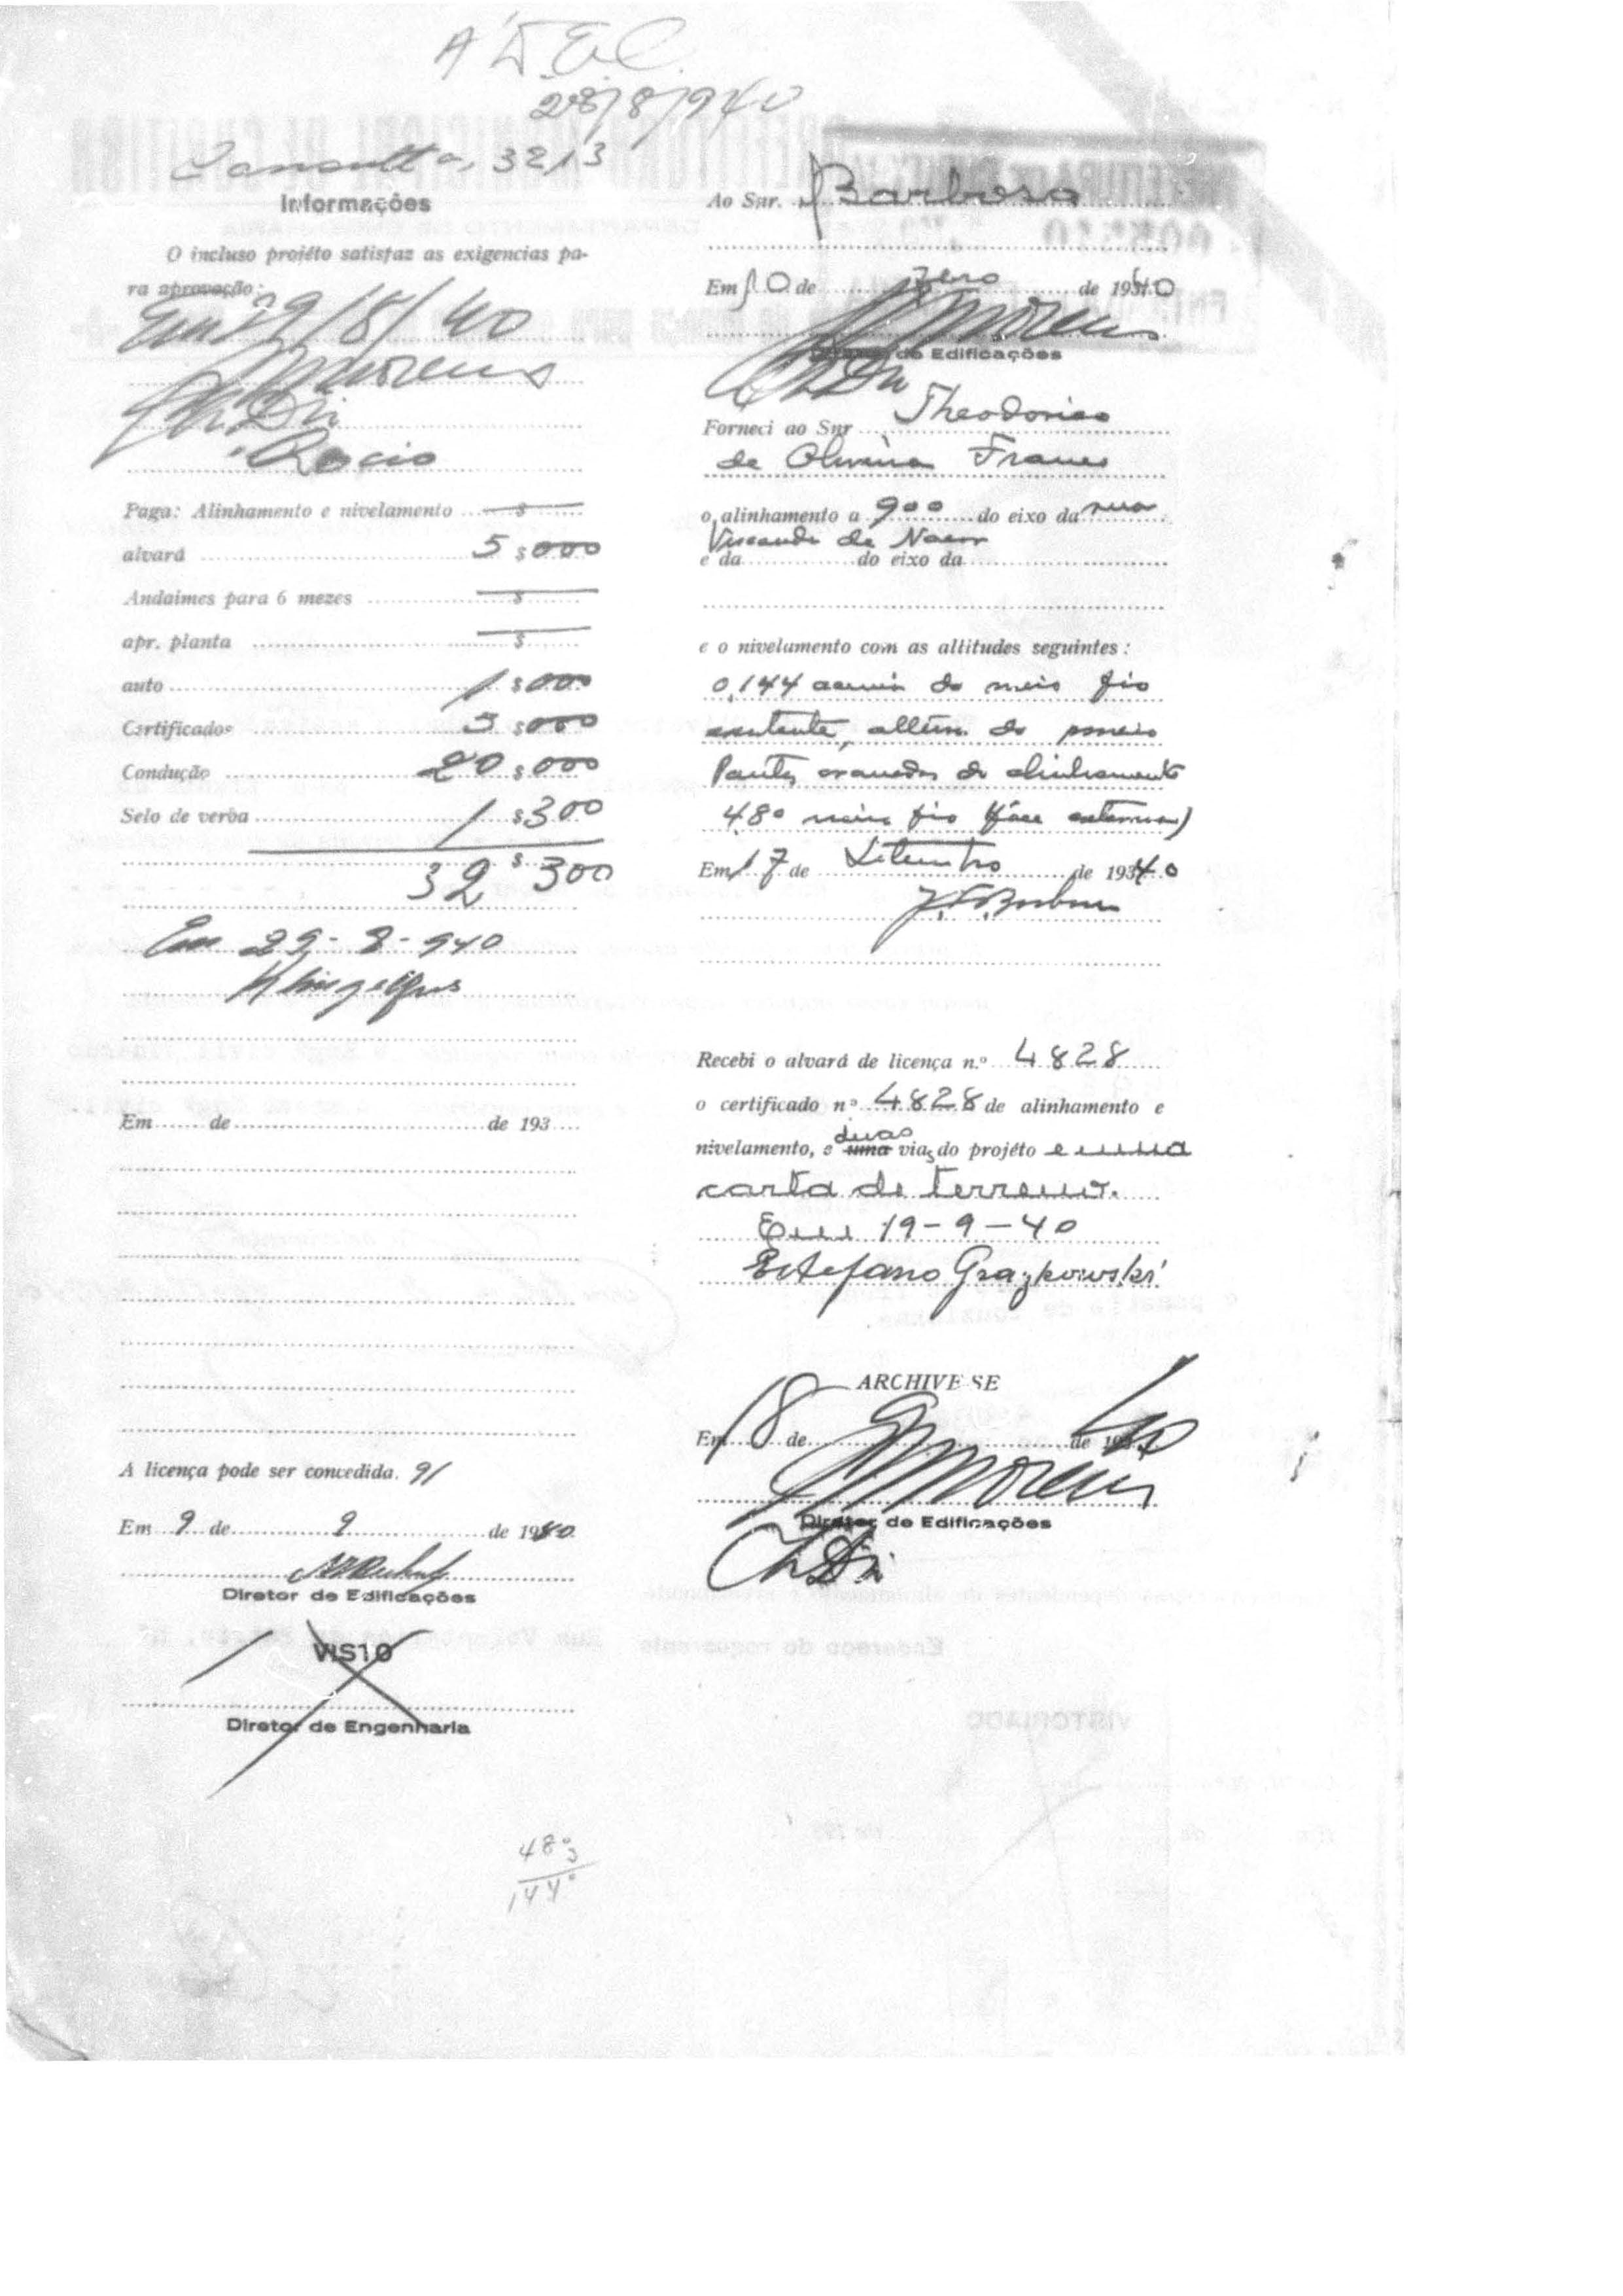 A' D.E.C.
28/8/940
Consulta, 3213
Informações
O incluso projéto satisfaz as exigencias pa-
ra aprovação:
Em 29/8/40
Moreira
Rocio
Paga: Alinhamento e nivelamento $
alvará 5$000
Andaimes para 6 mezes $
apr. planta $
auto 1$000
Certificados 5$000
Condução 20$000
Selo de verba 1$300
32$300
Em 29-8-940
Em de de 193
A licença pode ser concedida. 9/
Em 9 de 9 de 1940
Diretor de Edificações
VISTO
Diretor de Engenharia
480
3
1440
Ao Snr. Barbosa
Em 10 de 7bro de 1940
Diretor de Edificações
Forneci ao Snr Theodorico
de Oliveira Franco
o alinhamento a 900 do eixo da rua
Visconde de Nacar
e da do eixo da
e o nivelamento com as altitudes seguintes:
0,144 acima do meio fio
existente, além do passeio
do alinhamento
480 meio fio (face externa)
Em 17 de Setembro de 1940
Recebi o alvará de licença n.º 4828
o certificado nº 4828 de alinhamento e
nivelamento, e uma duas vias do projéto e uma
carta de terreno.
Em 19-9-40
Estefano Grazkowski
ARCHIVE-SE
Em 18 de de 1940
Moreira
Diretor de Edificações